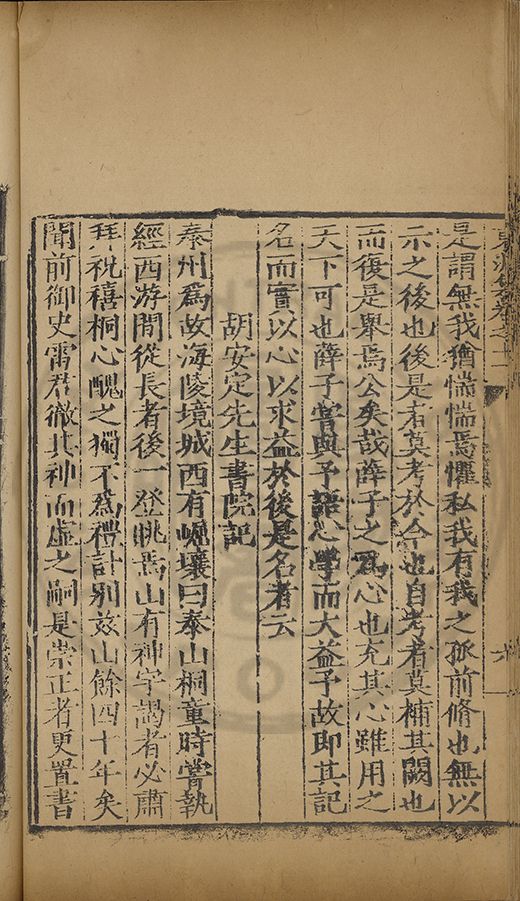 是謂無我猶惴惴焉懼私我有我之孤前脩也無以
示之後也後是者莫考於今也自考者莫補其闕也
而復是舉焉公矣哉薛子之爲心也充其心雖用之
天下可也薛子嘗與予語心學而大益予故即其記
名而實以心以求益於後是名者云
胡安定先生書院記
泰州爲故海陵境城西有崛壤曰泰山桐童時嘗執
經西游間從長者後一登眺焉山有神宇謁者必肅
拜祝禧桐心醜之獨不爲禮計别兹山餘四十年矣
聞前御史雷君徹其神而虛之嗣是崇正者更置書
卷之十一
六